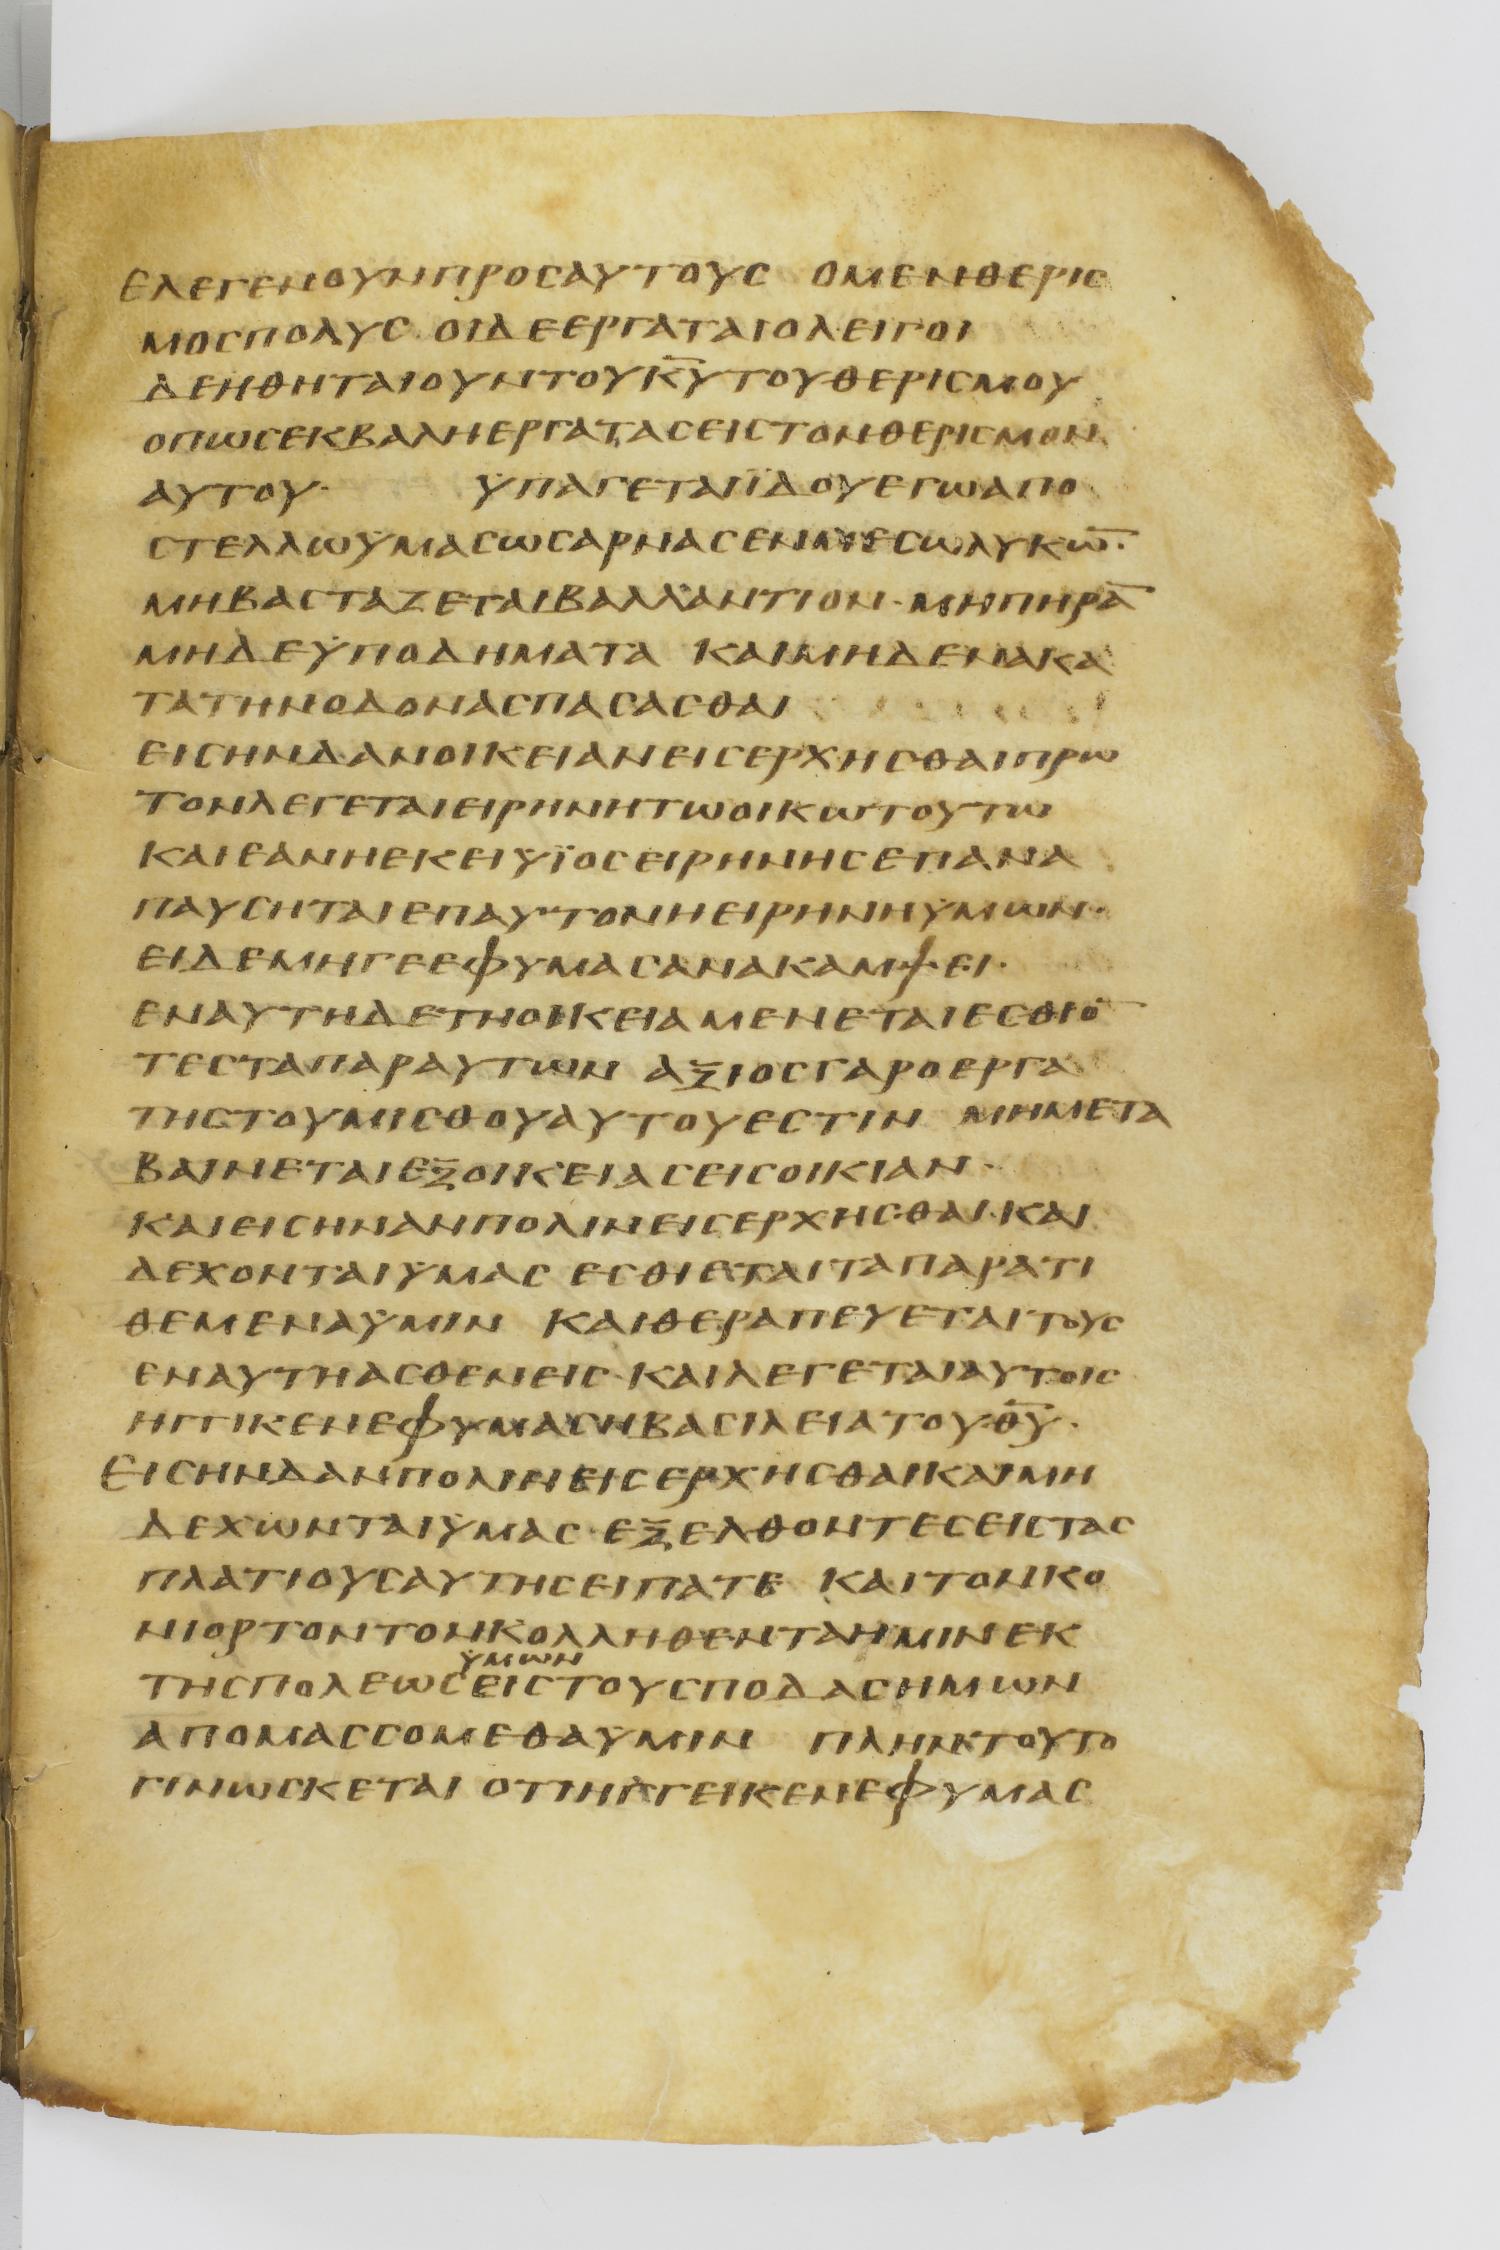 ΕΛΕΓΕΝΟΥΝΠΡΟCΑΥΤΟΥC ΟΜΕΝΘΕΡΙC
ΜΟCΠΟΛΥC ΟΙΔΕΕΡΓΑΤΑΙΟΛΕΙΓΟΙ
ΔΕΗΘΗΤΑΙΟΥΝΤΟΥΚ̅Υ̅ΤΟΥΘΕΡΙCΜΟΥ
ΟΠΩCΕΚΒΑΛΗΕΡΓΑΤΑCΕΙCΤΟΝΘΕΡΙCΜΟΝ
ΑΥΤΟΥ· ΫΠΑΓΕΤΑΙΪΔΟΥΕΓΩΑΠΟ
CΤΕΛΛΩΫΜΑCΩCΑΡΝΑCΕΝΜΕCΩΛΥΚΩ̅·
ΜΗΒΑCΤΑΖΕΤΑΙΒΑΛΛΑΝΤΙΟΝ·ΜΗΠΗΡΑ̅
ΜΗΔΕΫΠΟΔΗΜΑΤΑ ΚΑΙΜΗΔΕΝΑΚΑ
ΤΑΤΗΝΟΔΟΝΑCΠΑCΑCΘΑΙ
ΕΙCΗΝΔΑΝΟΙΚΕΙΑΝΕΙCΕΡΧΗCΘΑΙΠΡΩ
ΤΟΝΛΕΓΕΤΑΙΕΙΡΗΝΗΤΩΟΙΚΩΤΟΥΤΩ
ΚΑΙΕΑΝΗΕΚΕΙΫΪΟCΕΙΡΗΝΗCΕΠΑΝΑ
ΠΑΥCΗΤΑΙΕΠΑΥΤΟΝΗΕΙΡΗΝΗΫΜΩΝ·
ΕΙΔΕΜΗΓΕΕΦΥΜΑCΑΝΑΚΑΜΨΕΙ·
ΕΝΑΥΤΗΔΕΤΗΟΙΚΕΙΑΜΕΝΕΤΑΙΕCΘΙΟ̅
ΤΕCΤΑΠΑΡΑΥΤΩΝ ΑΞΙΟCΓΑΡΟΕΡΓΑ
ΤΗCΤΟΥΜΙCΘΟΥΑΥΤΟΥΕCΤΙΝ ΜΗΜΕΤΑ
ΒΑΙΝΕΤΑΙΕΞΟΙΚΕΙΑCΕΙCΟΙΚΙΑΝ·
ΚΑΙΕΙCΗΝΑΝΠΟΛΙΝΕΙCΕΡΧΗCΘΑΙ·ΚΑΙ
ΔΕΧΟΝΤΑΙΫΜΑC ΕCΘΙΕΤΑΙΤΑΠΑΡΑΤΙ
ΘΕΜΕΝΑΫΜΙΝ ΚΑΙΘΕΡΑΠΕΥΕΤΑΙΤΟΥC
ΕΝΑΥΤΗΑCΘΕΝΕΙC·ΚΑΙΛΕΓΕΤΑΙΑΥΤΟΙC
ΗΓΓΙΚΕΝΕΦΥΜΑCΗΒΑCΙΛΕΙΑΤΟΥΘ̅Υ̅·
ΕΙCΗΝΔΑΝΠΟΛΙΝΕΙCΕΡΧΗCΘΑΙΚΑΙΜΗ
ΔΕΧΩΝΤΑΙΫΜΑC·ΕΞΕΛΘΟΝΤΕCΕΙCΤΑC
ΠΛΑΤΙΟΥCΑΥΤΗCΕΙΠΑΤΕ ΚΑΙΤΟΝΚΟ
ΝΙΟΡΤΟΝΤΟΝΚΟΛΛΗΘΕΝΤΑΗΜΙΝΕΚ
ΫΜΩΝ
ΤΗCΠΟΛΕΩCΕΙCΤΟΥCΠΟΔΑCΗΜΩΝ
ΑΠΟΜΑCCΟΜΕΘΑΫΜΙΝ ΠΛΗΝΤΟΥΤΟ
ΓΙΝΩCΚΕΤΑΙ ΟΤΙΗΓΓΕΙΚΕΝΕΦΥΜΑC